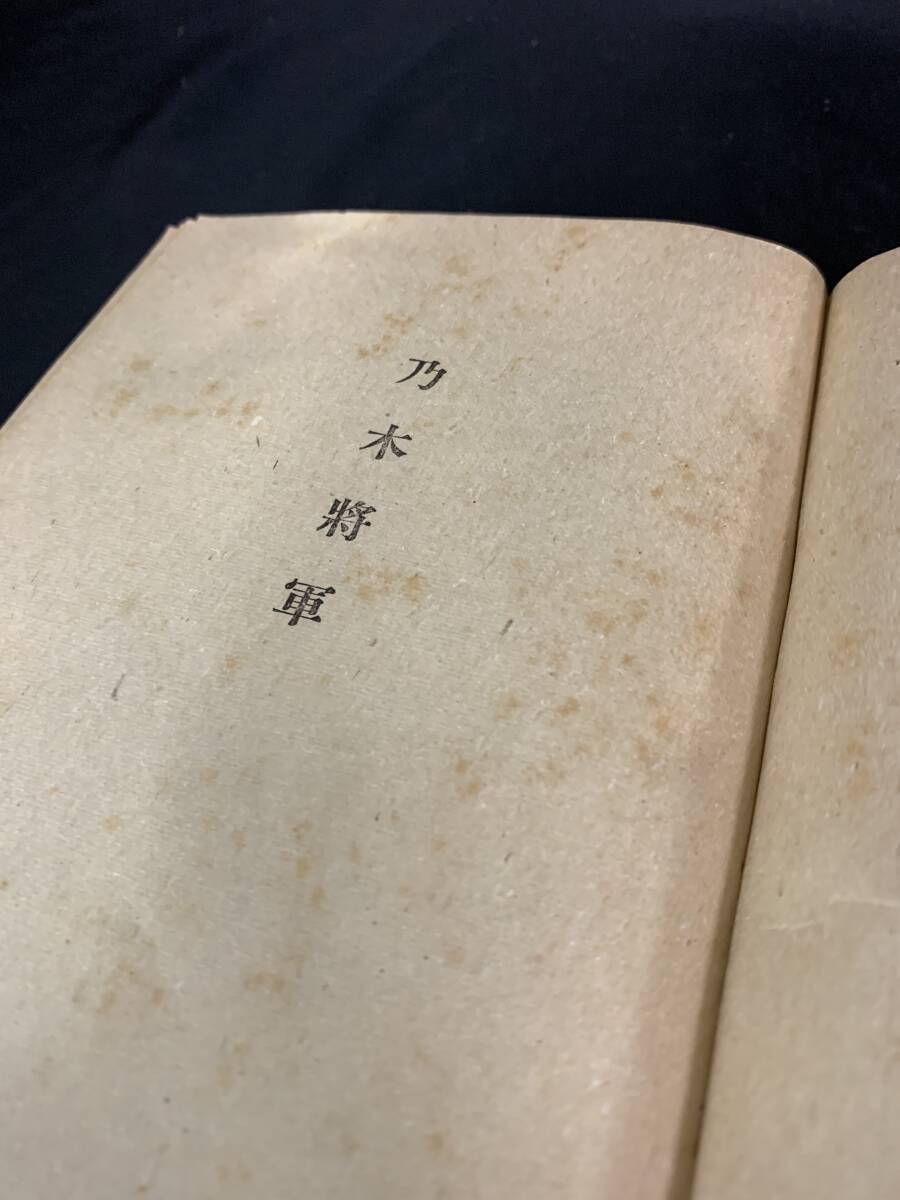 乃木將軍